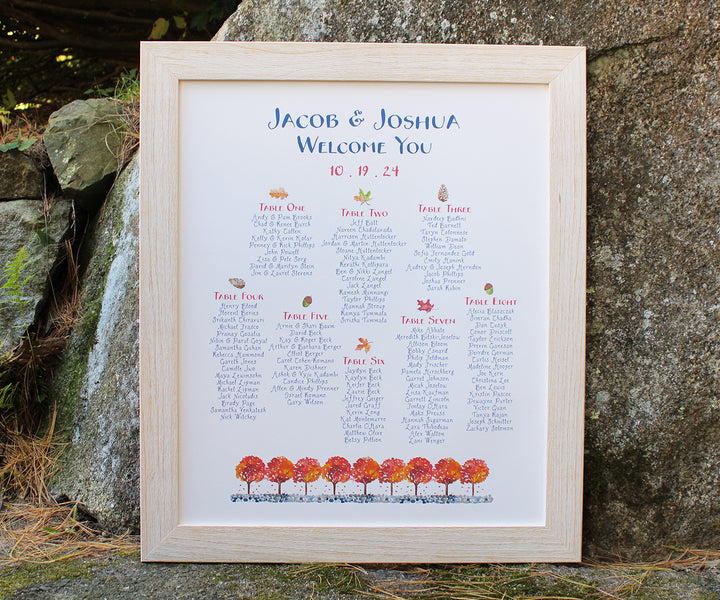 Jacob & Joshua
Welcome You
10.19.24
Table One
Andy & Pam Brooks
Chad & Renee Burch
Kathy Catten
Kelly & Kevin Kolar
Penney & Rick Phillips
John Powell
Lisa & Pete Sorg
David & Marilyn Stein
Jon & Laurel Stevens
Table Two
Jeff Batt
Naveen Chadalavada
Harrison Huttenlocker
Jordan & Martin Huttenlocker
Sloane Huttenlocker
Nitya Kadambi
Kerathi Kollipara
Ben & Nikki Langel
Caroline Langel
Jack Langel
Ramesh Minnangi
Taylor Phillips
Hannah Stroup
Ramya Tummala
Smitha Tummala
Table Three
Navdeep Budhni
Ted Burnett
Taryn Colonnese
Stephen Damato
William Dean
Sofia Fernandez Gold
Emily Hanink
Audrey & Joseph Herndon
Jacob Phillips
Joshua Prenner
Sarah Rubin
Table Four
Henry Blood
Florent Borius
Srikanth Chiravuri
Michael Frasco
Pranay Gosalia
Nitin & Parul Goyal
Samantha Guhan
Rebecca Hammond
Gareth Jones
Camille Two
Maya Lewinsohn
Michael Lipman
Rachel Lipman
Jack Nicoludis
Brady Page
Samantha Venkatesh
Nick Witchey
Table Five
Arnie & Shari Baum
David Beck
Kay & Roger Beck
Arthur & Barbara Berger
Elliot Berger
Carol Cohen-Romano
Karen Dishner
Ashok & Vyju Kadambi
Candice Phillips
Allen & Mindy Prenner
Israel Romano
Gary Wilson
Table Six
Jaydyn Beck
Kaylyn Beck
Kiefer Beck
Laurie Beck
Jeffrey Geiger
Jared Graff
Kevin Long
Kat Montemurro
Charlie O'Hara
Matthew Olive
Betsy Pittion
Table Seven
Mike Abbate
Meredith Bilski-Joselow
Allison Bloom
Bobby Conard
Philip Feldman
Mady Frischer
Pamela Hirschberg
Garret Johnson
Micah Joselow
Lisa Kaufman
Garrett Lincoln
Finlay O'Hara
Mike Preuss
Hannah Sugarman
Lara Thibodeau
Alex Walton
Lani Wenger
Table Eight
Alecia Blaszczak
Simran Chadha
Dan Cuzyk
Conor Driscoll
Taylor Erickson
Prerna Ganesan
Deirdre Gorman
Curtis Heisel
Madeline Hooper
Joe Kern
Christina Lee
Ben Lewis
Kristin Pascoe
Dewayne Porter
Victor Quan
Tanya Rajan
Joseph Schnitter
Zachary Solomon